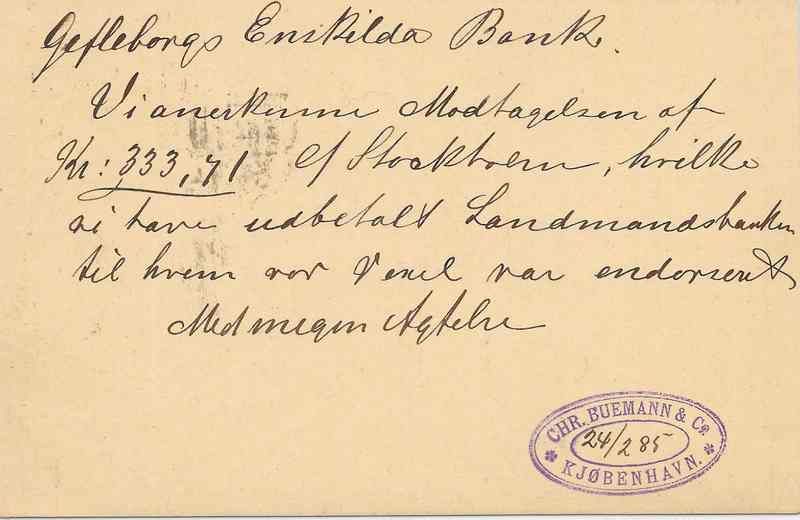 Gefleborgs Enskilda Bank.
Vi anerkjenne Modtagelsen af
Kr: 333,71 c/ Stockholm, hvilke
vi have udbetalt Landmandsbanken
til hvem vor Vexel var endorseret
Med megen Agtelse
CHR. BUEMANN & Co.
24/2 85
KJØBENHAVN.